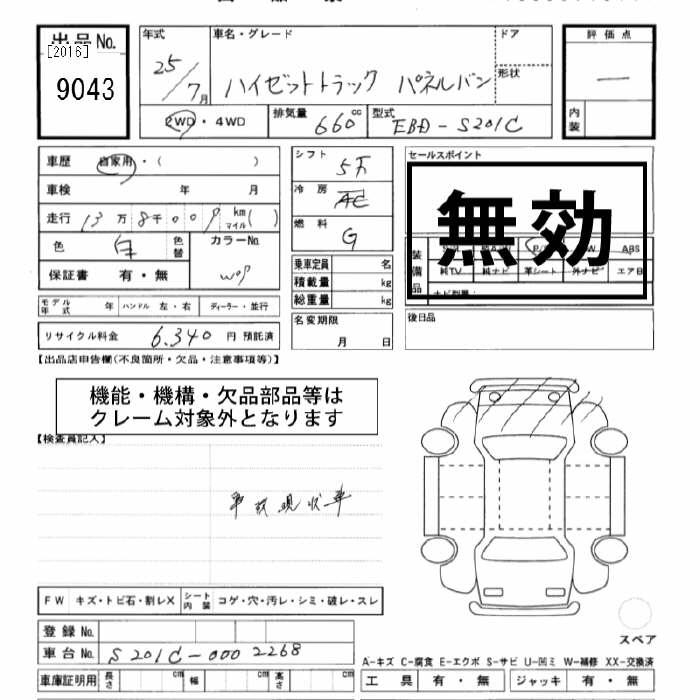 出品No.
[2016]
9043
年式
25/7月
車名・グレード
ハイゼットトラック パネルバン
ドア
形状
2WD・4WD
排気量 660 cc
型式 EBD-S201C
評価点
一
内装
車歴 自家用・( )
車検 年 月
走行 13万8千009 km マイル( )
色 白 色替
カラーNo. W09
保証書 有・無
モデル年式 年 ハンドル 左・右 ディーラー・並行
リサイクル料金 6,340 円 預託済
シフト 5F
冷房 AC
燃料 G
乗車定員 名
積載量 kg
総重量 kg
名変期限
月 日
セールスポイント
無効
装備品
ABS
純TV 純ナビ 革シート 外ナビ エアB
後日品
【出品店申告欄(不良箇所・欠品・注意事項等)】
機能・機構・欠品部品等は
クレーム対象外となります
【検査員記入】
事故現状車
FW キズ・トビ石・割レX シート内装 コゲ・穴・汚レ・シミ・破レ・スレ
登録No.
車台No. S201C-0002268
車庫証明用 長さ cm 幅 cm 高さ cm
スペア
A-キズ C-腐食 E-エクボ S-サビ U-凹ミ W-補修 XX-交換済
工具 有・無 ジャッキ 有・無